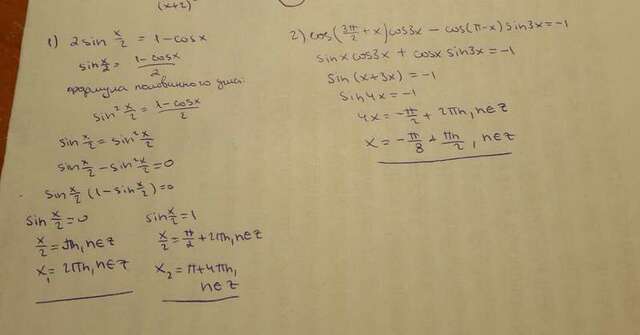 (x+2)²
1) 2sin x/2 = 1-cosx
sin x/2 = (1-cosx)/2
формула половинного угла:
sin² x/2 = (1-cosx)/2
sin x/2 = sin² x/2
sin x/2 - sin² x/2 = 0
sin x/2 (1-sin x/2) = 0
sin x/2 = 0
x/2 = πn, n∈z
x₁ = 2πn, n∈z
sin x/2 = 1
x/2 = π/2 + 2πn, n∈z
x₂ = π+4πn,
n∈z
2) cos(3π/2 + x) cos3x - cos(π-x) sin3x = -1
sinx cos3x + cosx sin3x = -1
sin(x+3x) = -1
sin4x = -1
4x = -π/2 + 2πn, n∈z
x = -π/8 + πn/2, n∈z